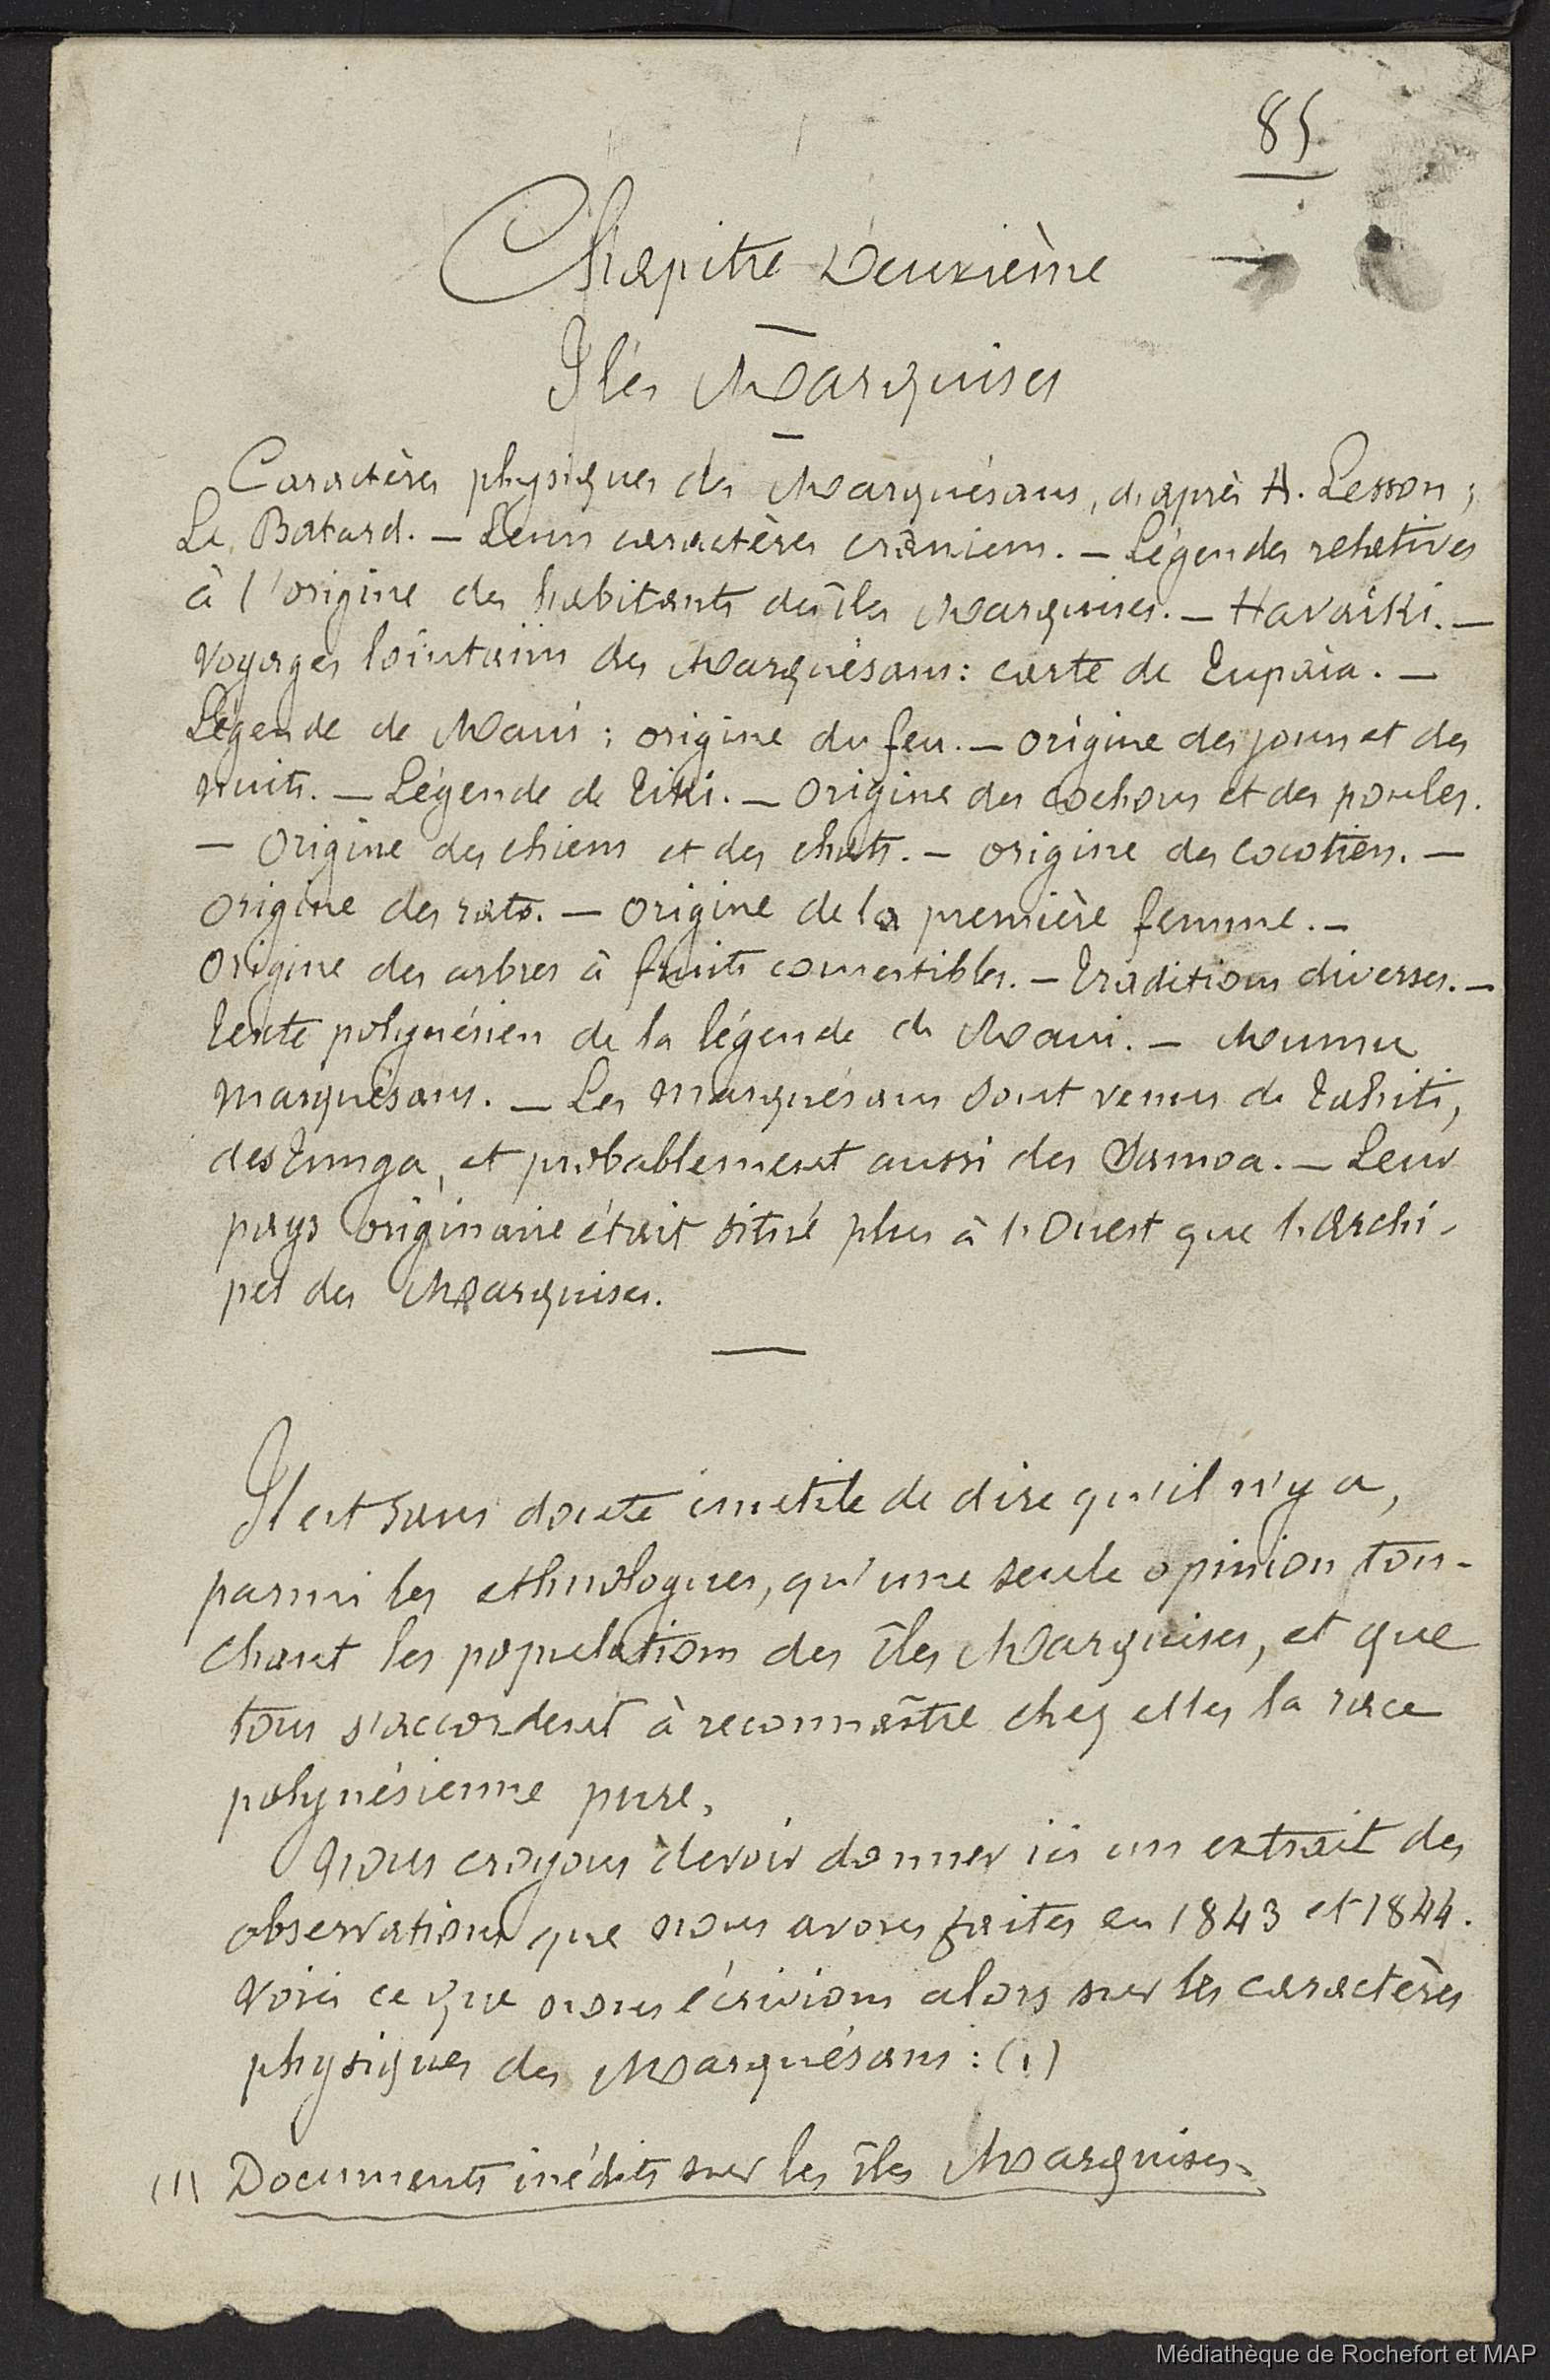 85
Chapitre Deuxième
Iles Marquises
Caractères physiques des Marquésans, d'après A. Lesson;
Le Batard. — Leurs caractères crâniens. — Légendes relatives
à l'origine des habitants des îles Marquises. — Havaïki. —
Voyages lointains des Marquésans: carte de Tupaïa. —
Légende de Maui; origine du feu. — Origine des jours et des
nuits. — Légende de Tiki. — Origine des cochons et des poules.
— Origine des chiens et des chats. — Origine des cocotiers. —
Origine des rats. — Origine de la première femme. —
Origine des arbres à fruits comestibles. — Traditions diverses. —
Texte polynésien de la légende de Maui. — Mumu
Marquésans. — Les Marquésans sont venus de Tahiti,
des Tunga, et probablement aussi des Samoa. — Leur
pays originaire était situé plus à l'Ouest que l'archi-
pel des Marquises.
Il est sans doute inutile de dire qu'il n'y a,
parmi les ethnologues, qu'une seule opinion tou-
chant les populations des îles Marquises, et que
tous s'accordent à reconnaître chez elles la race
polynésienne pure.
Nous croyons devoir donner ici un extrait des
observations que nous avons faites en 1843 et 1844.
Voici ce que nous écrivions alors sur les caractères
physiques des Marquésans: (1)
(1) Documents inédits sur les îles Marquises.
Médiathèque de Rochefort et MAP